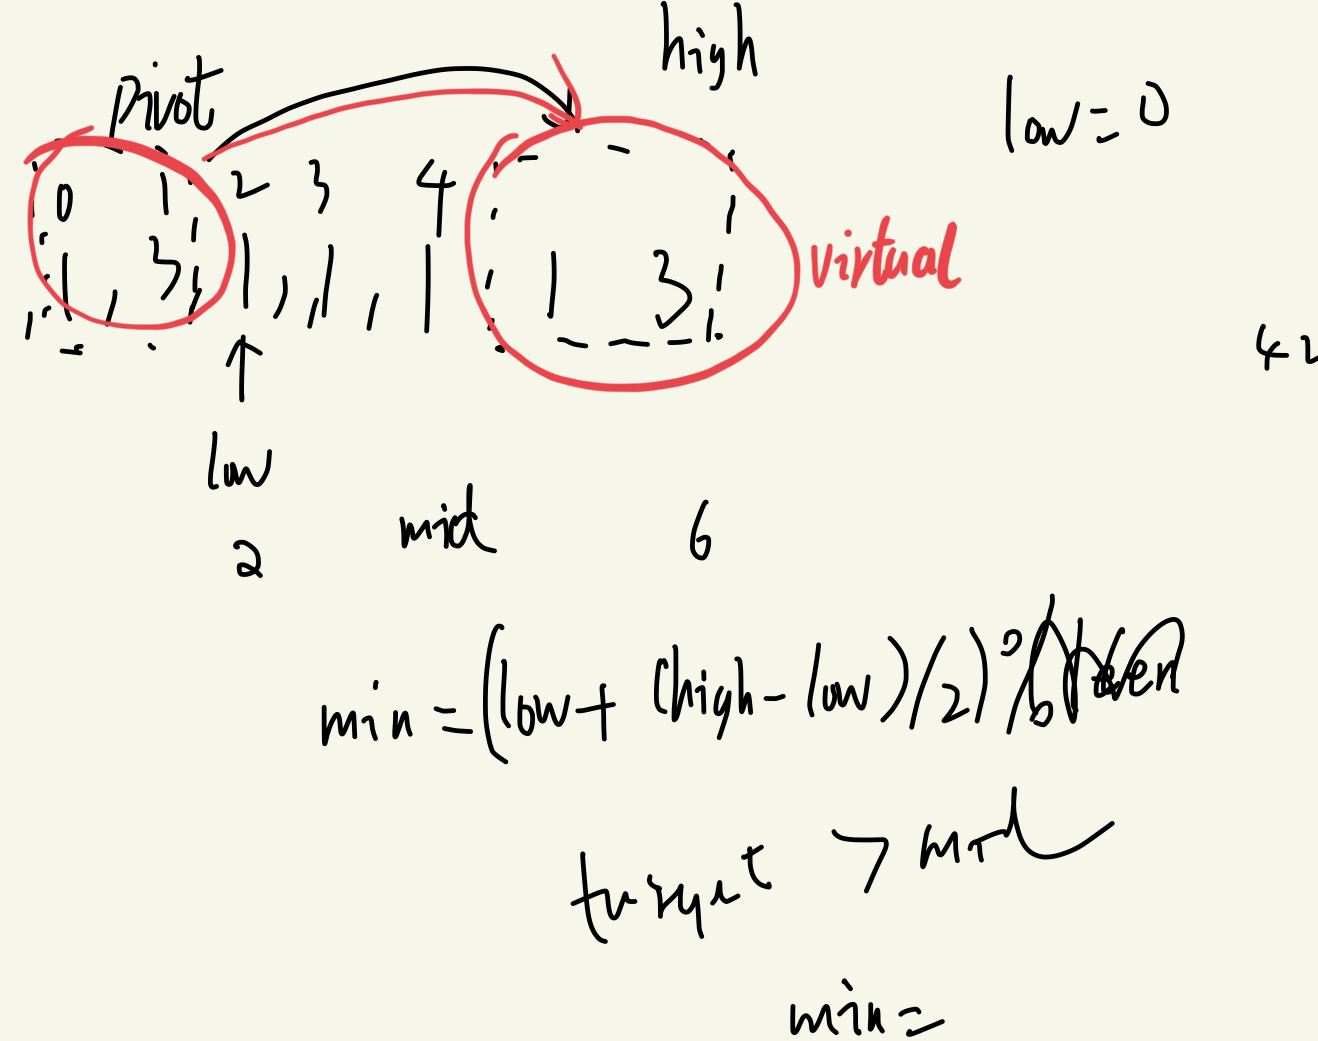 high
pivot
low=0
0 1 2 3 4
1, 3, 1, 1, 1 1 3
virtual
42
low
mid
2 6
min = (low + (high - low)/2) %
target > mid
min=